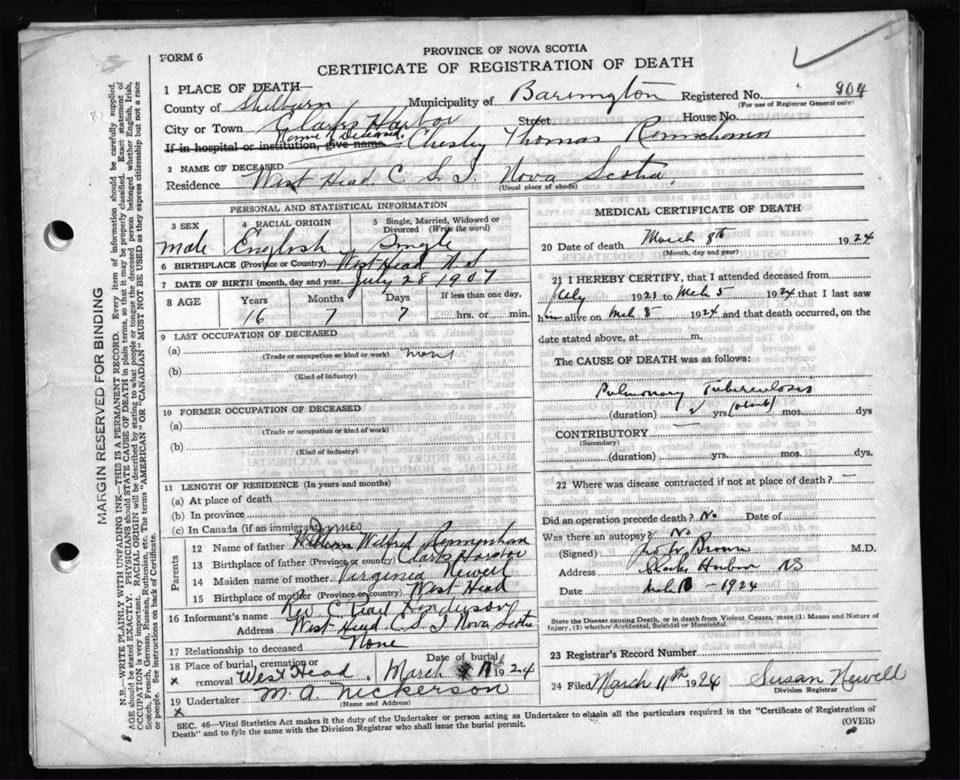 PROVINCE OF NOVA SCOTIA
FORM 6
CERTIFICATE OF REGISTRATION OF DEATH
1 PLACE OF DEATH—
County of Shelburn Municipality of Barington Registered No. 804
(For use of Registrar General only)
City or Town Clarks Harbor Street House No.
If in hospital or institution, give name
Name of Deceased. Chesley Thomas
2 NAME OF DECEASED
Residence West Head. C. S. I. Nova Scotia.
(Usual place of abode)
PERSONAL AND STATISTICAL INFORMATION
3 SEX 4 RACIAL ORIGIN 5 Single, Married, Widowed or Divorced (Write the word)
male English Single
6 BIRTHPLACE (Province or Country) West Head N.S.
7 DATE OF BIRTH (month, day and year) July 28 1907
8 AGE Years Months Days If less than one day,
16 7 7 hrs. or min.
9 LAST OCCUPATION OF DECEASED
(a) none
(Trade or occupation or kind or work)
(b)
(Kind of industry)
10 FORMER OCCUPATION OF DECEASED
(a)
(Trade or occupation or kind or work)
(b)
(Kind of industry)
11 LENGTH OF RESIDENCE (In years and months)
(a) At place of death
(b) In province
(c) In Canada (if an immigrant)
Parents
12 Name of father James Wilfred
13 Birthplace of father (Province or country) Clarks Harbor
14 Maiden name of mother Virginia Newell
15 Birthplace of mother (Province or country) West Head
16 Informant's name Rev C. Pearl Henderson
Address West Head C. S. I. Nova Scotia
17 Relationship to deceased None
18 Place of burial, cremation or removal West Head Date of burial March 1924
19 Undertaker M. A. Nickerson
(Name and Address)
MEDICAL CERTIFICATE OF DEATH
20 Date of death March 8th 1924
(Month, day and year)
21 I HEREBY CERTIFY, that I attended deceased from
July 1923 to Mch 5 1924 that I last saw
him alive on Mch 5 1924 and that death occurred, on the
date stated above, at m.
The CAUSE OF DEATH was as follows:
Pulmonary Tuberculosis
(duration) yrs (about) mos. dys
CONTRIBUTORY
(Secondary)
(duration) yrs. mos. dys
22 Where was disease contracted if not at place of death? —
Did an operation precede death? No Date of
Was there an autopsy? No
(Signed) Brown M.D.
Address Harbor NS
Date Mch – 1924
State the Disease causing Death, or in death from Violent Causes, state (1) Means and Nature of Injury, (2) whether Accidental, Suicidal or Homicidal.
23 Registrar's Record Number
24 Filed March 11th 1924 Susan Newell
Division Registrar
SEC. 46—Vital Statistics Act makes it the duty of the Undertaker or person acting as Undertaker to obtain all the particulars required in the "Certificate of Registration of
Death" and to fyle the same with the Division Registrar who shall issue the burial permit. (OVER)
MARGIN RESERVED FOR BINDING
N.B.—WRITE PLAINLY WITH UNFADING INK—THIS IS A PERMANENT RECORD. Every item of information should be carefully supplied.
AGE should be stated EXACTLY. PHYSICIANS should STATE CAUSE OF DEATH in plain terms, so that it may be properly classified. Exact statement of
OCCUPATION is very important. RACIAL ORIGIN will be described by stating to what people or tongue the deceased person belonged whether English, Irish,
Scotch, French, German, Russian, Ruthenian, etc. The terms "AMERICAN" or "CANADIAN" MUST NOT BE USED as they express citizenship but not a race
or people. See instructions on back of Certificate.